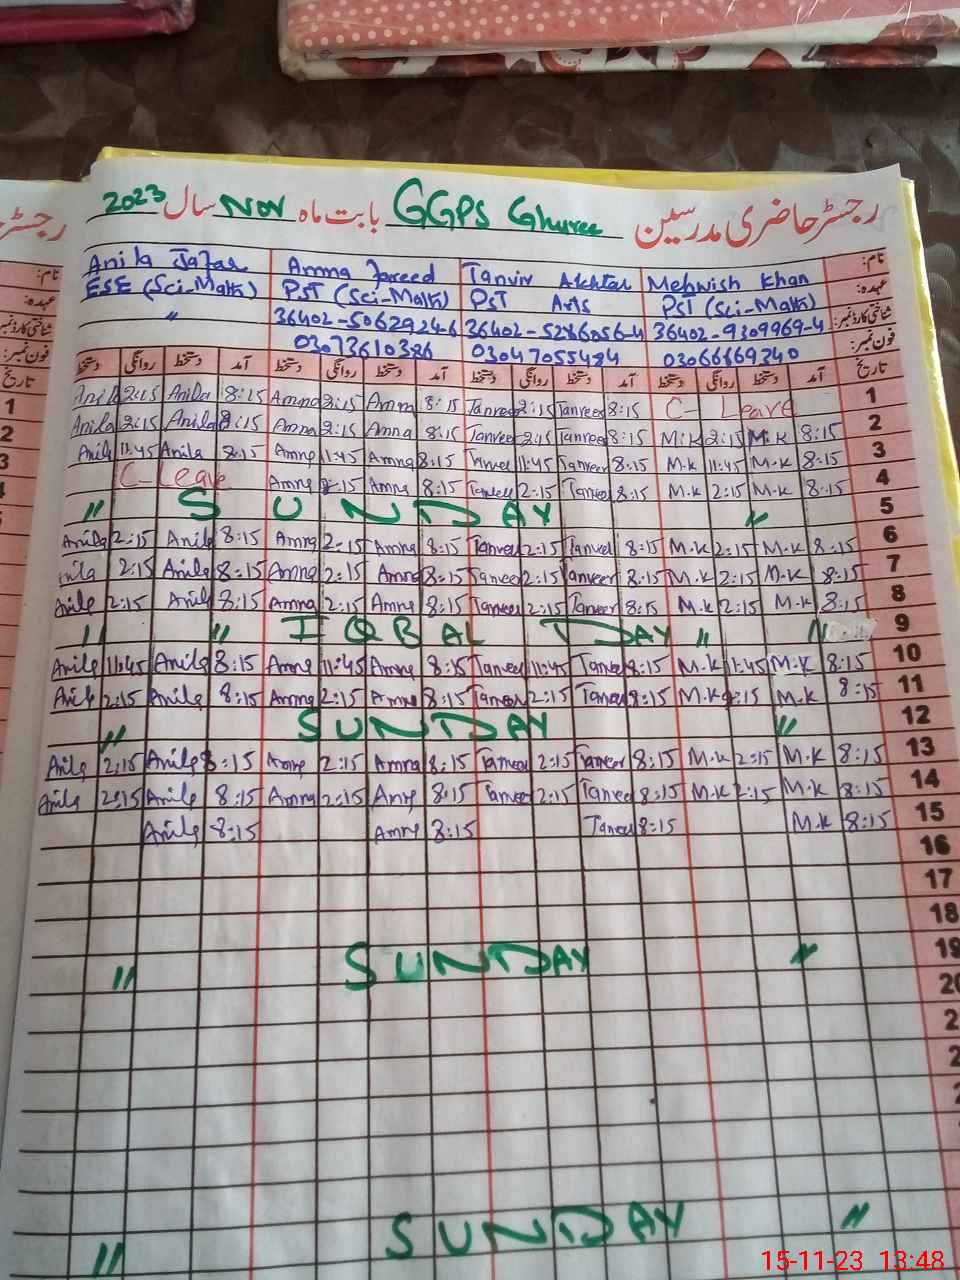 رجسٹر حاضری مدرسین GGPS Ghuree بابت ماہ Nov سال 2023
نام: Mehwish Khan Tanvir Akhtar Amna Fareed Anila Jafar
عہدہ: PST (Sci-Math) PST Arts PST (Sci-Math) ESE (Sci-Math)
شناختی کارڈ نمبر: 36402-9309969-4 36402-5286056-4 36402-5062924-6 "
فون نمبر: 03066669240 03047055484 03073610386
تاریخ آمد دستخط روانگی دستخط آمد دستخط روانگی دستخط آمد دستخط روانگی دستخط آمد دستخط روانگی دستخط
Anila 2:15 Anila 8:15 Amna 2:15 Amna 8:15 Tanveer 2:15 Tanveer 8:15 C- Leave 1
Anila 2:15 Anila 8:15 Amna 2:15 Amna 8:15 Tanveer 2:15 Tanveer 8:15 M.K 2:15 M.K 8:15 2
Anila 11:45 Anila 8:15 Amna 11:45 Amna 8:15 Tanveer 11:45 Tanveer 8:15 M.K 11:45 M.K 8:15 3
C- Leave Amna 2:15 Amna 8:15 Tanveer 2:15 Tanveer 8:15 M.K 2:15 M.K 8:15 4
" SUNDAY " 5
Anila 2:15 Anila 8:15 Amna 2:15 Amna 8:15 Tanveer 2:15 Tanveer 8:15 M.K 2:15 M.K 8:15 6
Anila 2:15 Anila 8:15 Amna 2:15 Amna 8:15 Tanveer 2:15 Tanveer 8:15 M.K 2:15 M.K 8:15 7
Anila 2:15 Anila 8:15 Amna 2:15 Amna 8:15 Tanveer 2:15 Tanveer 8:15 M.K 2:15 M.K 8:15 8
" " IQBAL DAY " " 9
Anila 11:45 Anila 8:15 Amna 11:45 Amna 8:15 Tanveer 11:45 Tanveer 8:15 M.K 11:45 M.K 8:15 10
Anila 2:15 Anila 8:15 Amna 2:15 Amna 8:15 Tanveer 2:15 Tanveer 8:15 M.K 2:15 M.K 8:15 11
" SUNDAY " 12
Anila 2:15 Anila 8:15 Amna 2:15 Amna 8:15 Tanveer 2:15 Tanveer 8:15 M.K 2:15 M.K 8:15 13
Anila 2:15 Anila 8:15 Amna 2:15 Amna 8:15 Tanveer 2:15 Tanveer 8:15 M.K 2:15 M.K 8:15 14
Anila 8:15 Amna 8:15 Tanveer 8:15 M.K 8:15 15
16
17
18
" SUNDAY " 19
" SUNDAY "
15-11-23 13:48